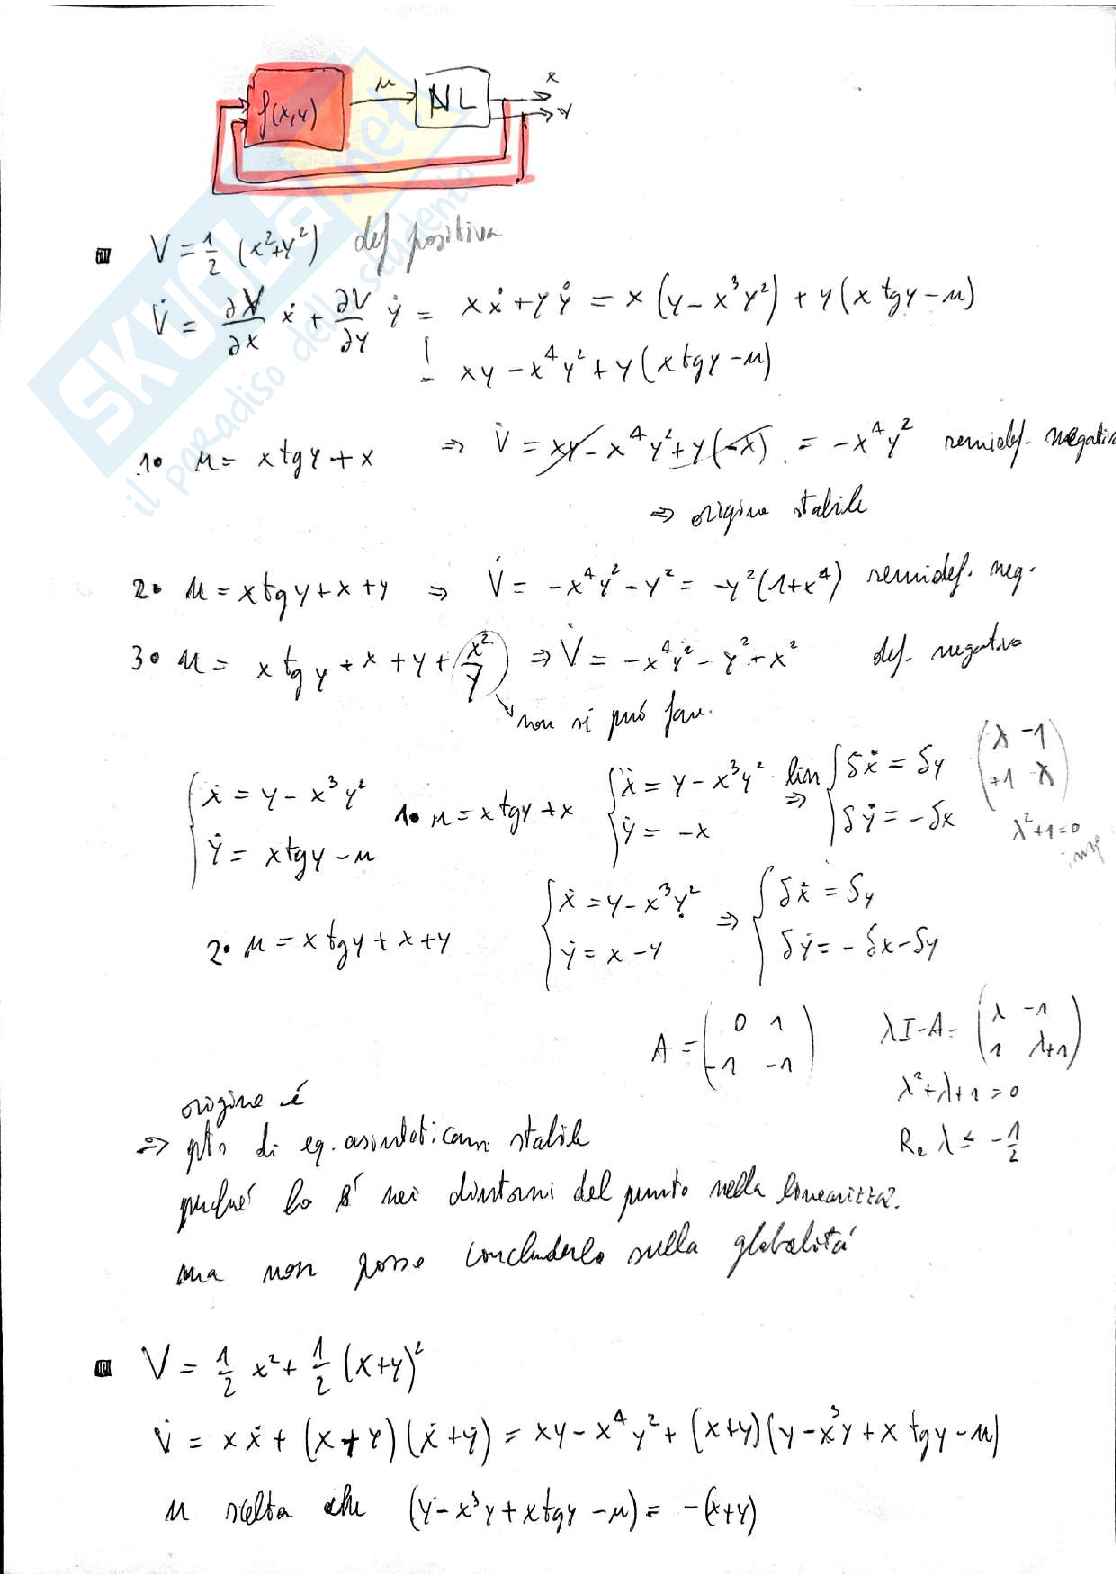 f(x,y) u NL x y
V = 1/2 (x²+y²) def positiva
V̇ = ∂V/∂x ẋ + ∂V/∂y ẏ = xẋ + yẏ = x(y − x³y²) + y(x tgy − u)
= xy − x⁴y² + y(x tgy − u)
1• u = x tgy + x ⇒ V̇ = xy − x⁴y² + y(−x) = −x⁴y² semidef. negativa
⇒ origine stabile
2• u = x tgy + x + y ⇒ V̇ = −x⁴y² − y² = −y²(1+x⁴) semidef. neg.
3• u = x tgy + x + y + x²/y ⇒ V̇ = −x⁴y² − y² + x² def. negativa
non si può fare.
{ẋ = y − x³y² 1• u = x tgy + x {ẋ = y − x³y² lin ⇒ {δẋ = δy (λ −1
ẏ = x tgy − u ẏ = −x δẏ = −δx +1 λ)
λ²+1=0
2• u = x tgy + x + y {ẋ = y − x³y² ⇒ {δẋ = δy
ẏ = x − y δẏ = −δx − δy
A = (0 1 λI−A = (λ −1
−1 −1) 1 λ+1)
λ²+λ+1=0
origine é
⇒ pto di eq. asintoticam stabile Re λ ≤ −1/2
perché lo é nei dintorni del punto nella linearizzaz.
ma non posso concluderlo sulla globalitá
V = 1/2 x² + 1/2 (x+y)²
V̇ = xẋ + (x+y)(ẋ+ẏ) = xy − x⁴y² + (x+y)(y − x³y + x tgy − u)
u scelta che (y − x³y + x tgy − u) = −(x+y)
SKUOLA.net
il paradiso dello studente